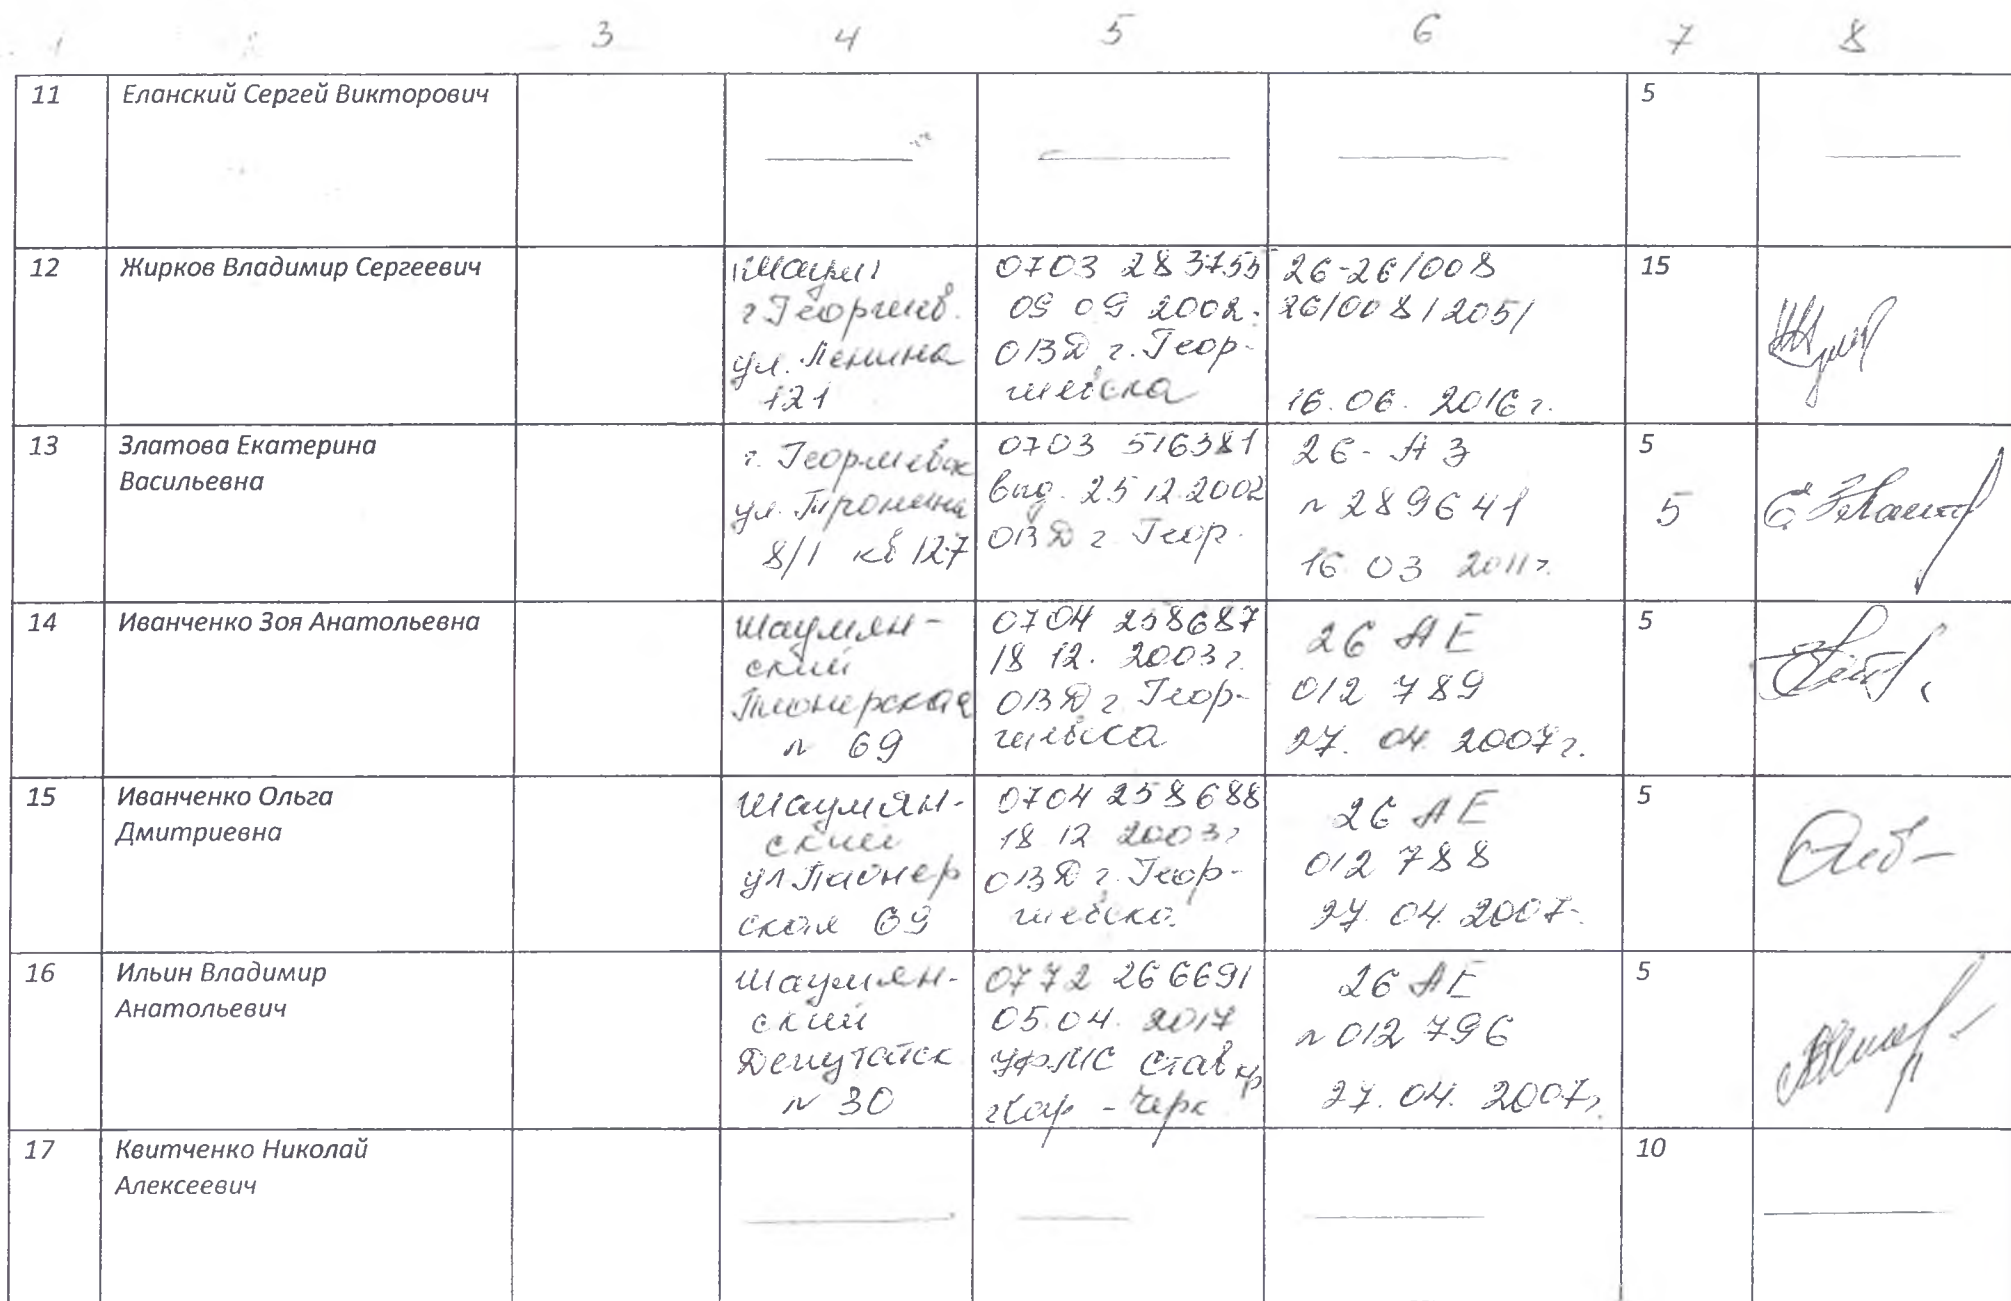 1 2 3 4 5 6 7 8
11 Еланский Сергей Викторович 5
12 Жирков Владимир Сергеевич 15
г Георгиев.
ул. Ленина
121
0703 283755
09 09 2002.
ОВД г. Геор-
гиевска
26-26/008
26/008/2051
16.06. 2016 г.
13 Златова Екатерина
Васильевна
г. Георгиевск
ул.
8/1 кв 127
0703 516381
выд. 25 12 2002
ОВД г Геор.
26-АЗ
№ 289641
16 03 2011г.
5
5
14 Иванченко Зоя Анатольевна
Шаумян-
ский
Пионерская
№ 69
0704 258687
18 12. 2003г.
ОВД г Геор-
гиевска
26 АЕ
012 789
27. 04. 2007г.
5
15 Иванченко Ольга
Дмитриевна
Шаумян-
ский
ул Пионер
ская 69
0704 258688
18 12 2003г
ОВД г. Геор-
гиевска.
26 АЕ
012 788
27. 04. 2007г.
5
16 Ильин Владимир
Анатольевич
Шаумян-
ский
Депутатск
№ 30
0772 266691
05.04. 2017
УФМС Став кр
Кар - Черк
26 АЕ
№ 012 796
27. 04. 2007г.
5
17 Квитченко Николай
Алексеевич
10